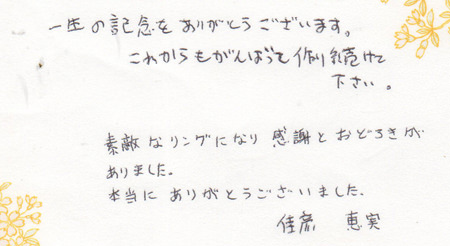 一生の記念をありがとうございます。
これからもがんばって作り続けて
下さい。
素敵なリングになり感謝とおどろきが
ありました。
本当にありがとうございました.
佳彦 恵実